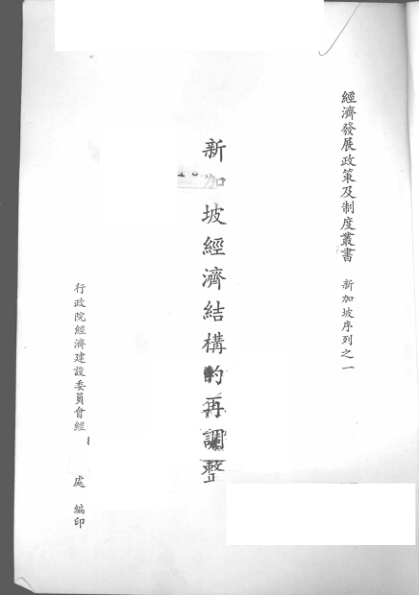 經濟發展政策及制度叢書 新加坡序列之一
新加坡經濟結構的再調整
行政院經濟建設委員會經 處 編印